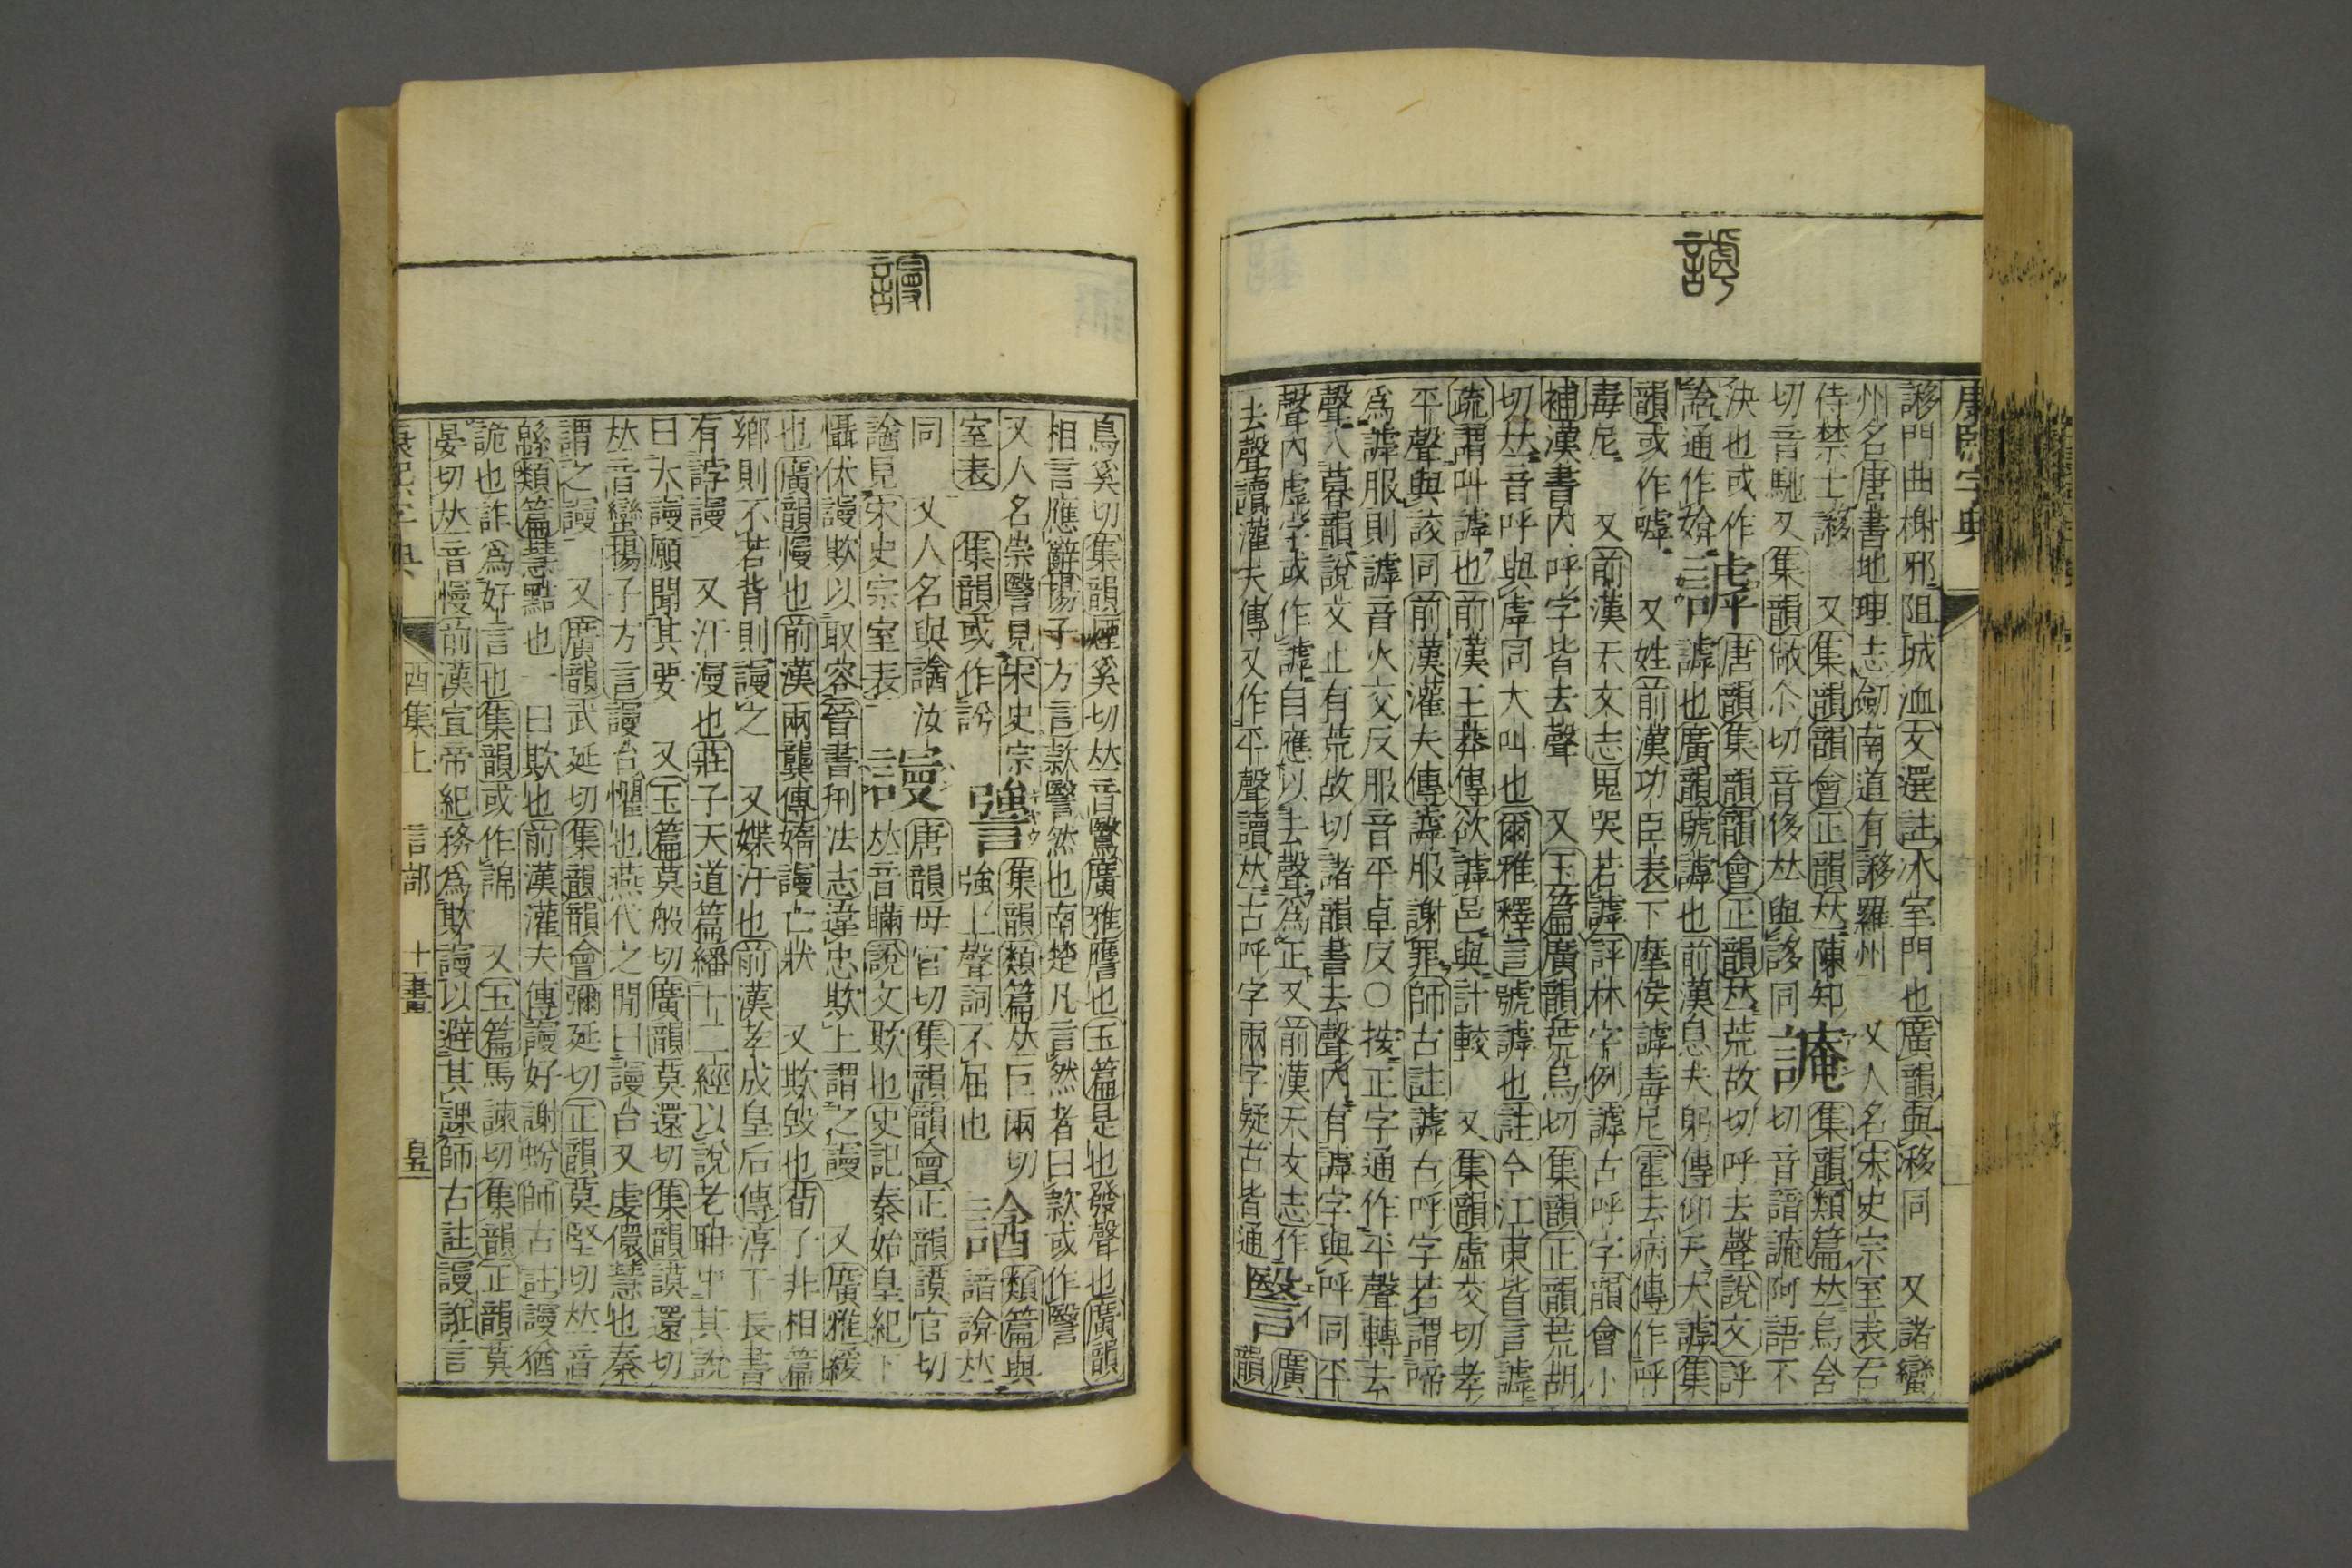 康熙字典
謻門曲榭邪阻城洫文選註冰室門也廣韻與簃同　又諸蠻
州名唐書地理志劒南道有謻羅州　又人名宋史宗室表右
侍禁士謻　又集韻韻會正韻𠀤陳知
切音馳又集韻敞尒切音侈𠀤與誃同
譩
集韻類篇𠀤烏含
切音諳譩阿語不
決也或作
誝通作媕
謼
唐韻集韻韻會正韻𠀤荒故切呼去聲說文評
謼也廣韻號謼也前漢息夫躬傳仰天大謼集
韻或作嘑　又姓前漢功臣表下摩侯謼毒尼霍去病傳作呼
毒尼　又前漢天文志鬼哭若謼評林字例謼古呼字韻會小
補漢書內呼字皆去聲　又玉篇廣韻荒烏切集韻正韻荒胡
切𠀤音呼與虖同大叫也爾雅釋言號謼也註今江東皆言謼
疏謂叫謼也前漢王莽傳欲謼邑與計較　又集韻虛交切孝
平聲與詨同前漢灌夫傳謼服謝罪師古註謼古呼字若謂啼
爲謼服則謼音火交反服音平卓反〇按正字通作平聲轉去
聲入暮韻說文止有荒故切諸韻書去聲內有謼字與呼同平
聲內虖字或作謼自應以去聲爲正又前漢天文志作
去聲讀灌夫傳又作平聲讀𠀤古呼字兩字疑古皆通
譩
廣
韻
烏奚切集韻煙奚切𠀤音鷖廣雅譍也玉篇是也發聲也廣韻
相言應辭揚子方言欸譩然也南楚凡言然者曰欸或作譩
又人名崇譩見宋史宗
室表　集韻或作䛳
謽
集韻類篇𠀤巨兩切
強上聲詞不屈也
譮
類篇與
諳說𠀤
同　又人名與譮汝
譮見宋史宗室表
謾
唐韻母官切集韻韻會正韻謨官切
𠀤音瞞說文欺也史記秦始皇紀下
懾伏謾欺以取容晉書𠛬法志違忠欺上謂之謾　又廣雅緩
也廣韻慢也前漢兩龔傳媠謾亡狀　又欺毀也荀子非相篇
鄉則不若背則謾之　又媟汙也前漢孝成皇后傳淳于長書
有誖謾　又汗漫也莊子天道篇繙十二經以說老耼中其說
曰大謾願聞其要　又玉篇莫般切廣韻莫還切集韻謨還切
𠀤音蠻揚子方言謾台懼也燕代之閒曰謾台又虔儇慧也秦
謂之謾　又廣韻武延切集韻韻會彌延切正韻莫堅切𠀤音
緜類篇慧黠也一曰欺也前漢灌夫傳謾好謝蚡師古註謾猶
詭也詐爲好言也集韻或作謜　又玉篇馬諫切集韻正韻莫
晏切𠀤音慢前漢宣帝紀務爲欺謾以避其課師古註謾誑言
康熙字典　酉集上　言部　十畫